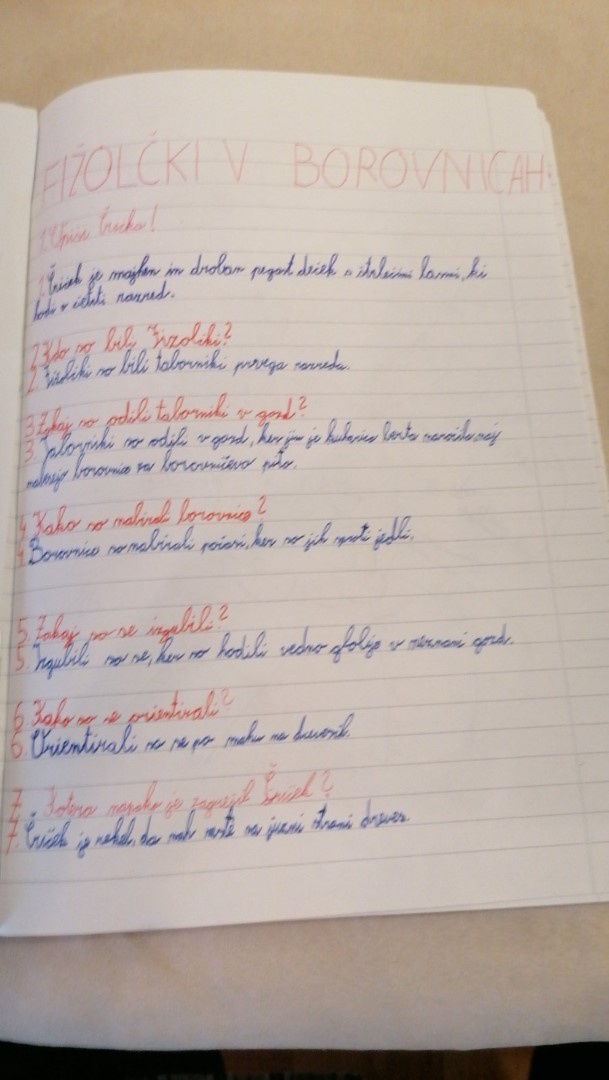 FIŽOLČKI V BOROVNICAH
1. Opiši Črička!
1. Čriček je majhen in droban pegast deček s štrlečimi lasmi, ki
hodi v četrti razred.
2. Kdo so bili Fižolčki?
2. Fižolčki so bili taborniki prvega razreda.
3. Zakaj so odšli taborniki v gozd?
3. Taborniki so odšli v gozd, ker jim je kuharica Berta naročila naj
naberejo borovnice za borovničevo pito.
4. Kako so nabirali borovnice?
4. Borovnice so nabirali počasi, ker so jih sproti jedli.
5. Zakaj so se izgubili?
5. Izgubili so se, ker so hodili vedno globlje v neznani gozd.
6. Kako so se orientirali?
6. Orientirali so se po mahu na drevesih.
7. Katero napako je zagrešil Čriček?
7. Čriček je rekel, da mah raste na južni strani dreves.